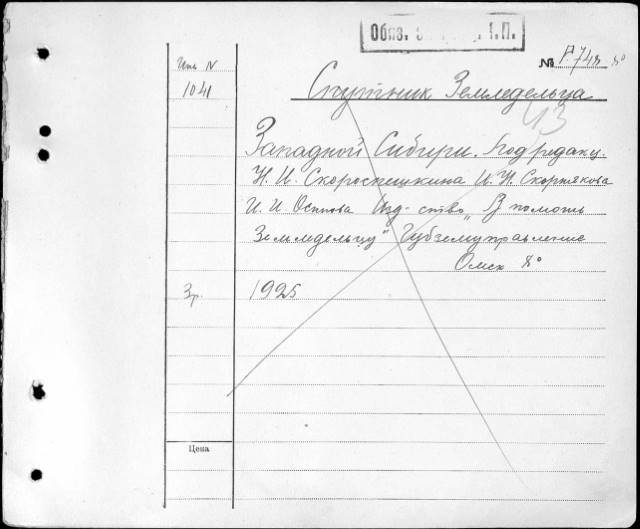 Обяз.
№ Р.748 8°
Инв N
1041
Спутник Земледельца
43
Западной Сибири. Под редакц.
Н. И. Скороспешкина И. Н. Скорнякова
И. И. Осипова Изд-ство „В помощь
Земледельцу" Губземуправление
Омск 8°
1925
Цена